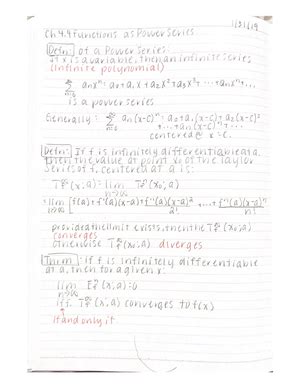 1/31/19
Ch 4.4 Functions as Power Series
Defn: of a Power Series:
If x is a variable, then an infinite series
(infinite polynomial)
∞Σn=0 anxⁿ = a0+a1x+a2x²+a3x³+...+anxⁿ+...
is a power series
Generally: ∞Σn=0 an(x-c)ⁿ = a0+a1(x-c)+a2(x-c)²
+...+an(x-c)ⁿ+...
centered @ x=c.
Defn: If f is infinitely differentiable at a,
then the value at point x0 of the Taylor
Series of f, centered at a is:
lim n→∞
= lim n→∞ [f(a)+f'(a)(x-a)+f''(a)(x-a)²/2!+...+fⁿ(a)(x-a)ⁿ/n!]
provided the limit exists, then the
converges
otherwise diverges
Thrm: if f is infinitely differentiable
at a, then for a given x:
lim n→∞ (x;a)=0
iff. (x;a) converges to f(x)
if and only if